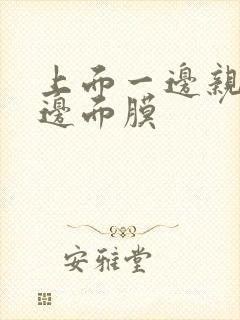 上面一邊親
邊面膜
安雅堂